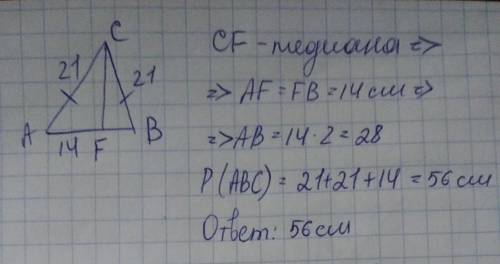 C
21
21
A
B
14
F
CF - медиана =>
=> AF = FB = 14 см =>
=> AB = 14 · 2 = 28
P(ABC) = 21+21+14 = 56 см
Ответ: 56 см